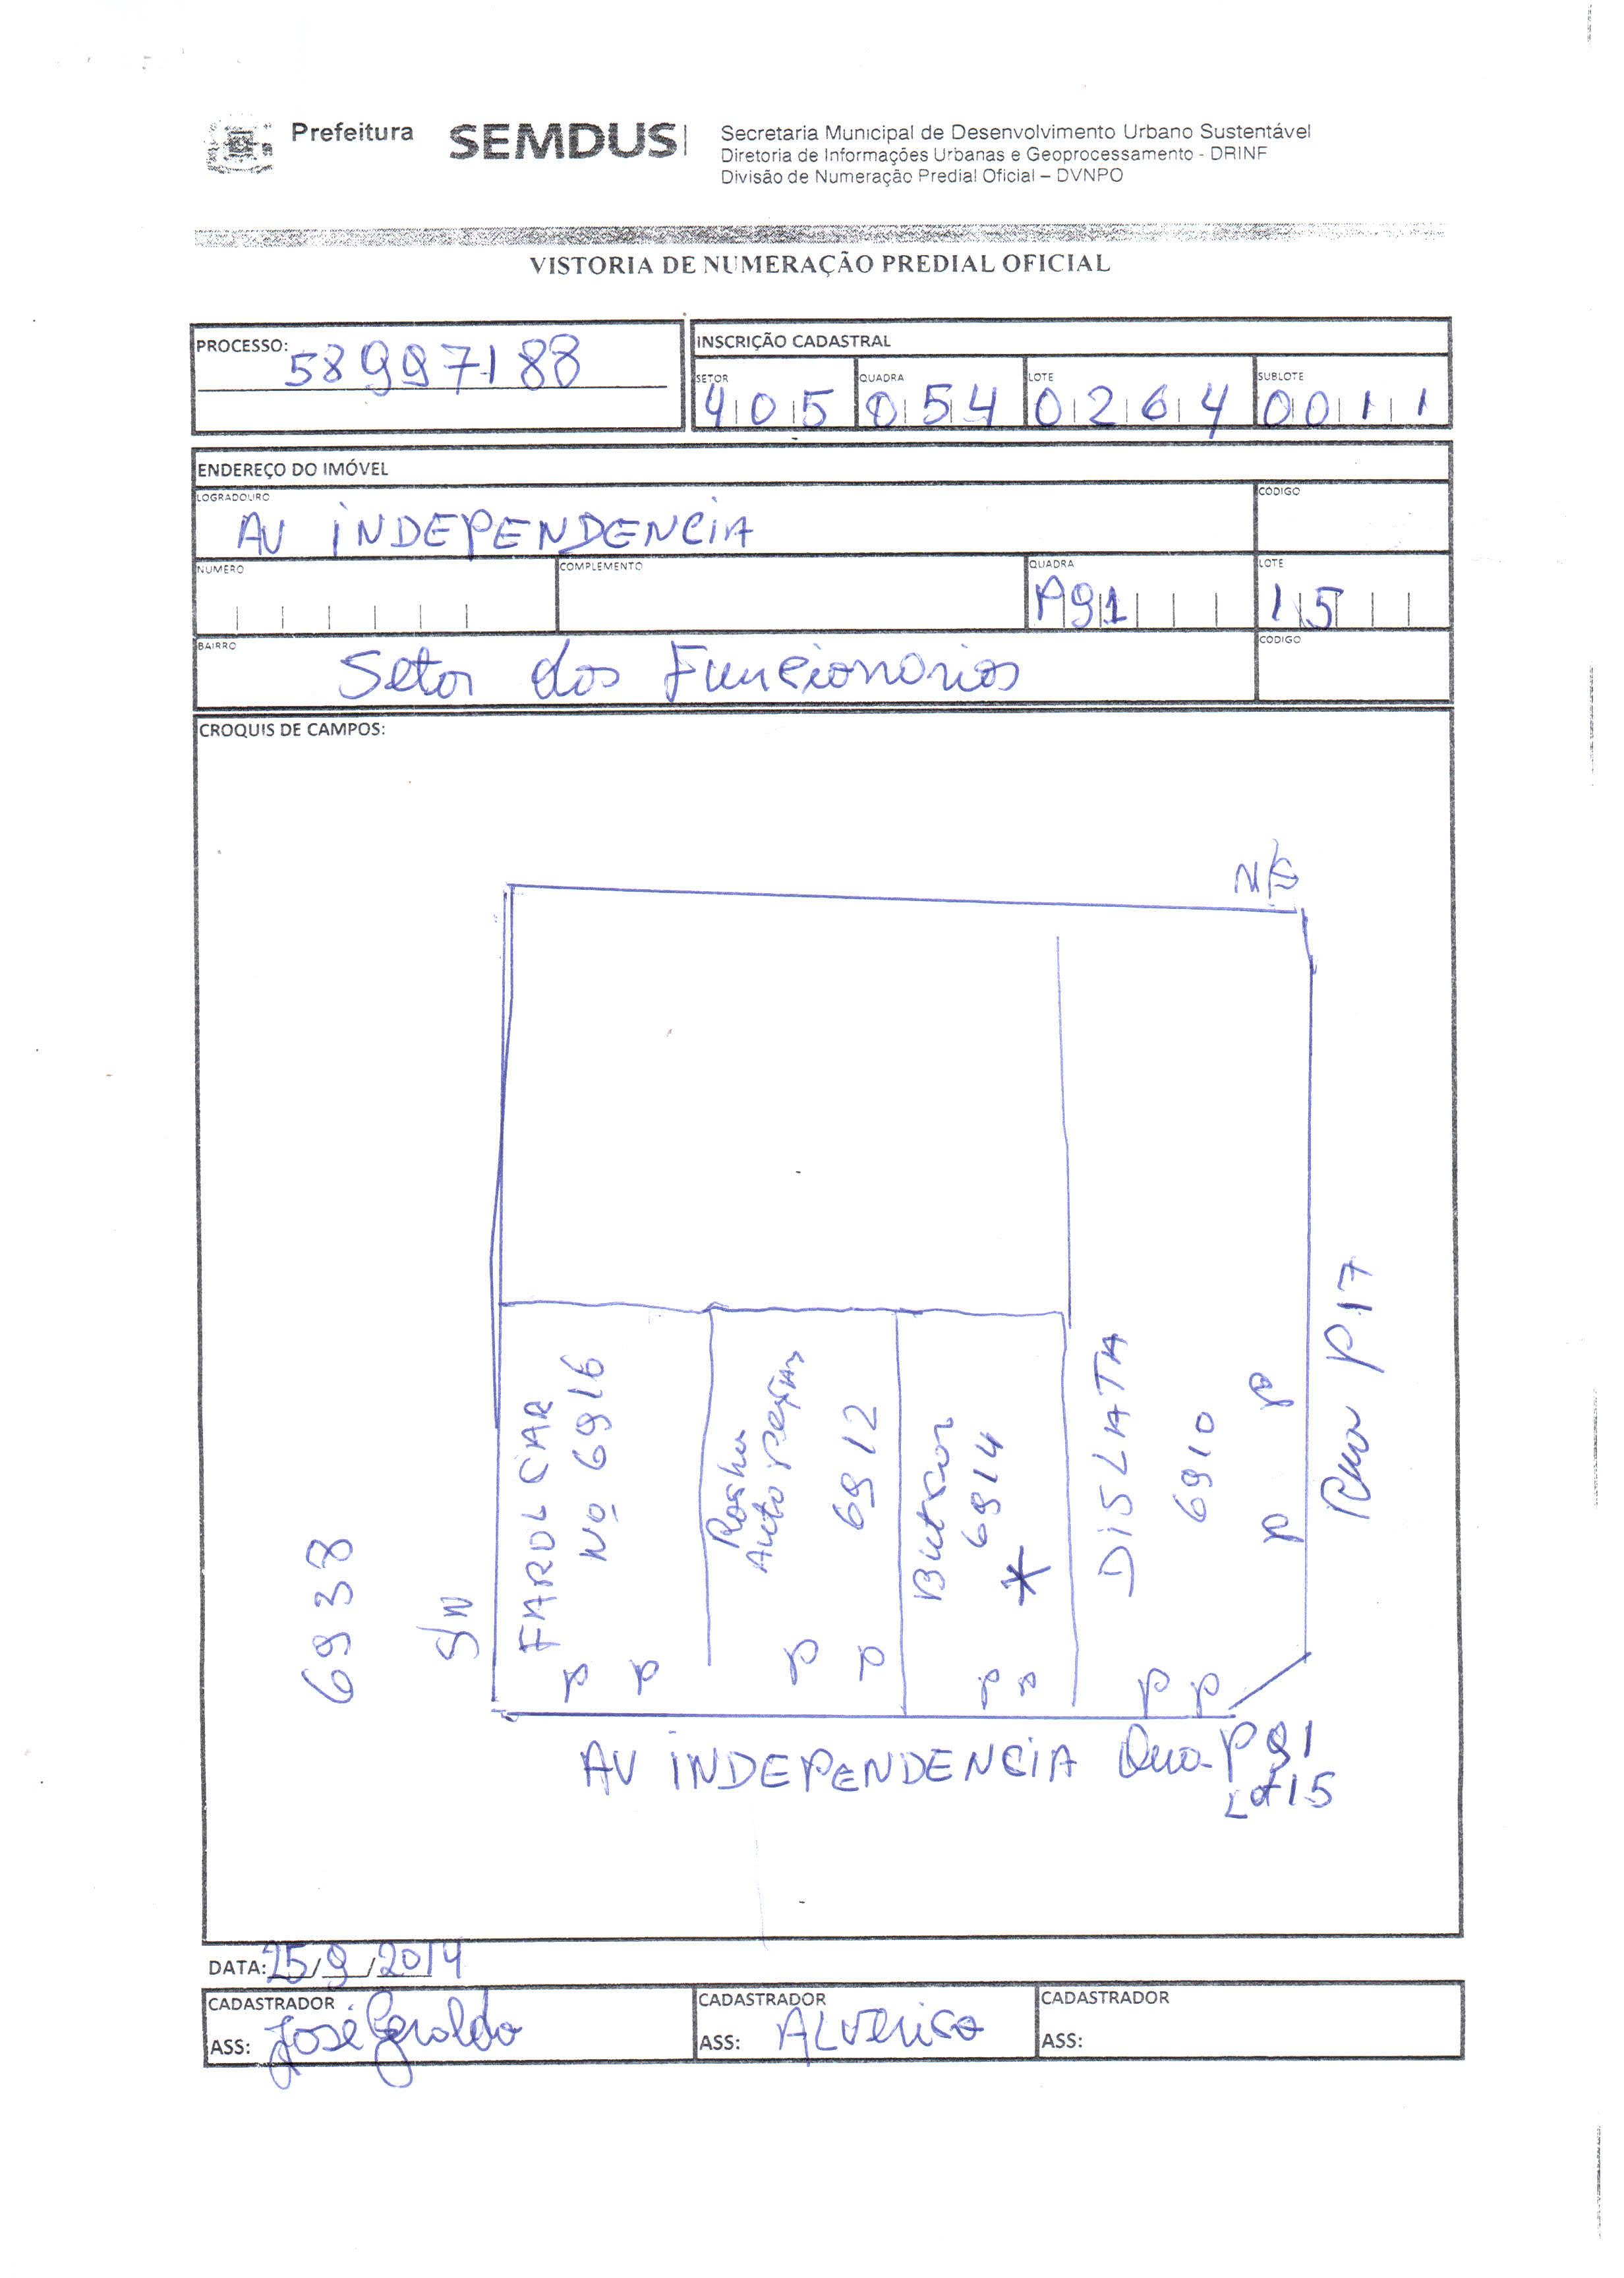 Prefeitura SEMDUS
Secretaria Municipal de Desenvolvimento Urbano Sustentável
Diretoria de Informações Urbanas e Geoprocessamento - DRINF
Divisão de Numeração Predial Oficial – DVNPO
VISTORIA DE NUMERAÇÃO PREDIAL OFICIAL
PROCESSO: 58997188
INSCRIÇÃO CADASTRAL
SETOR QUADRA LOTE SUBLOTE
405 054 0264 0011
ENDEREÇO DO IMÓVEL
LOGRADOURO CÓDIGO
AV INDEPENDENCIA
NUMERO COMPLEMENTO QUADRA LOTE
P91 15
BAIRRO CÓDIGO
Setor dos Funcionarios
CROQUIS DE CAMPOS:
6938
S/N
FAROL CAR
Nº 6916
Auto
6912
6914
*
DISLATA
6910
P P
P P
P P
P P
P P
Rua P17
AV INDEPENDENCIA Qua-P91
Lot 15
DATA: 25/9/2014
CADASTRADOR CADASTRADOR CADASTRADOR
ASS: José Geraldo ASS: ASS: